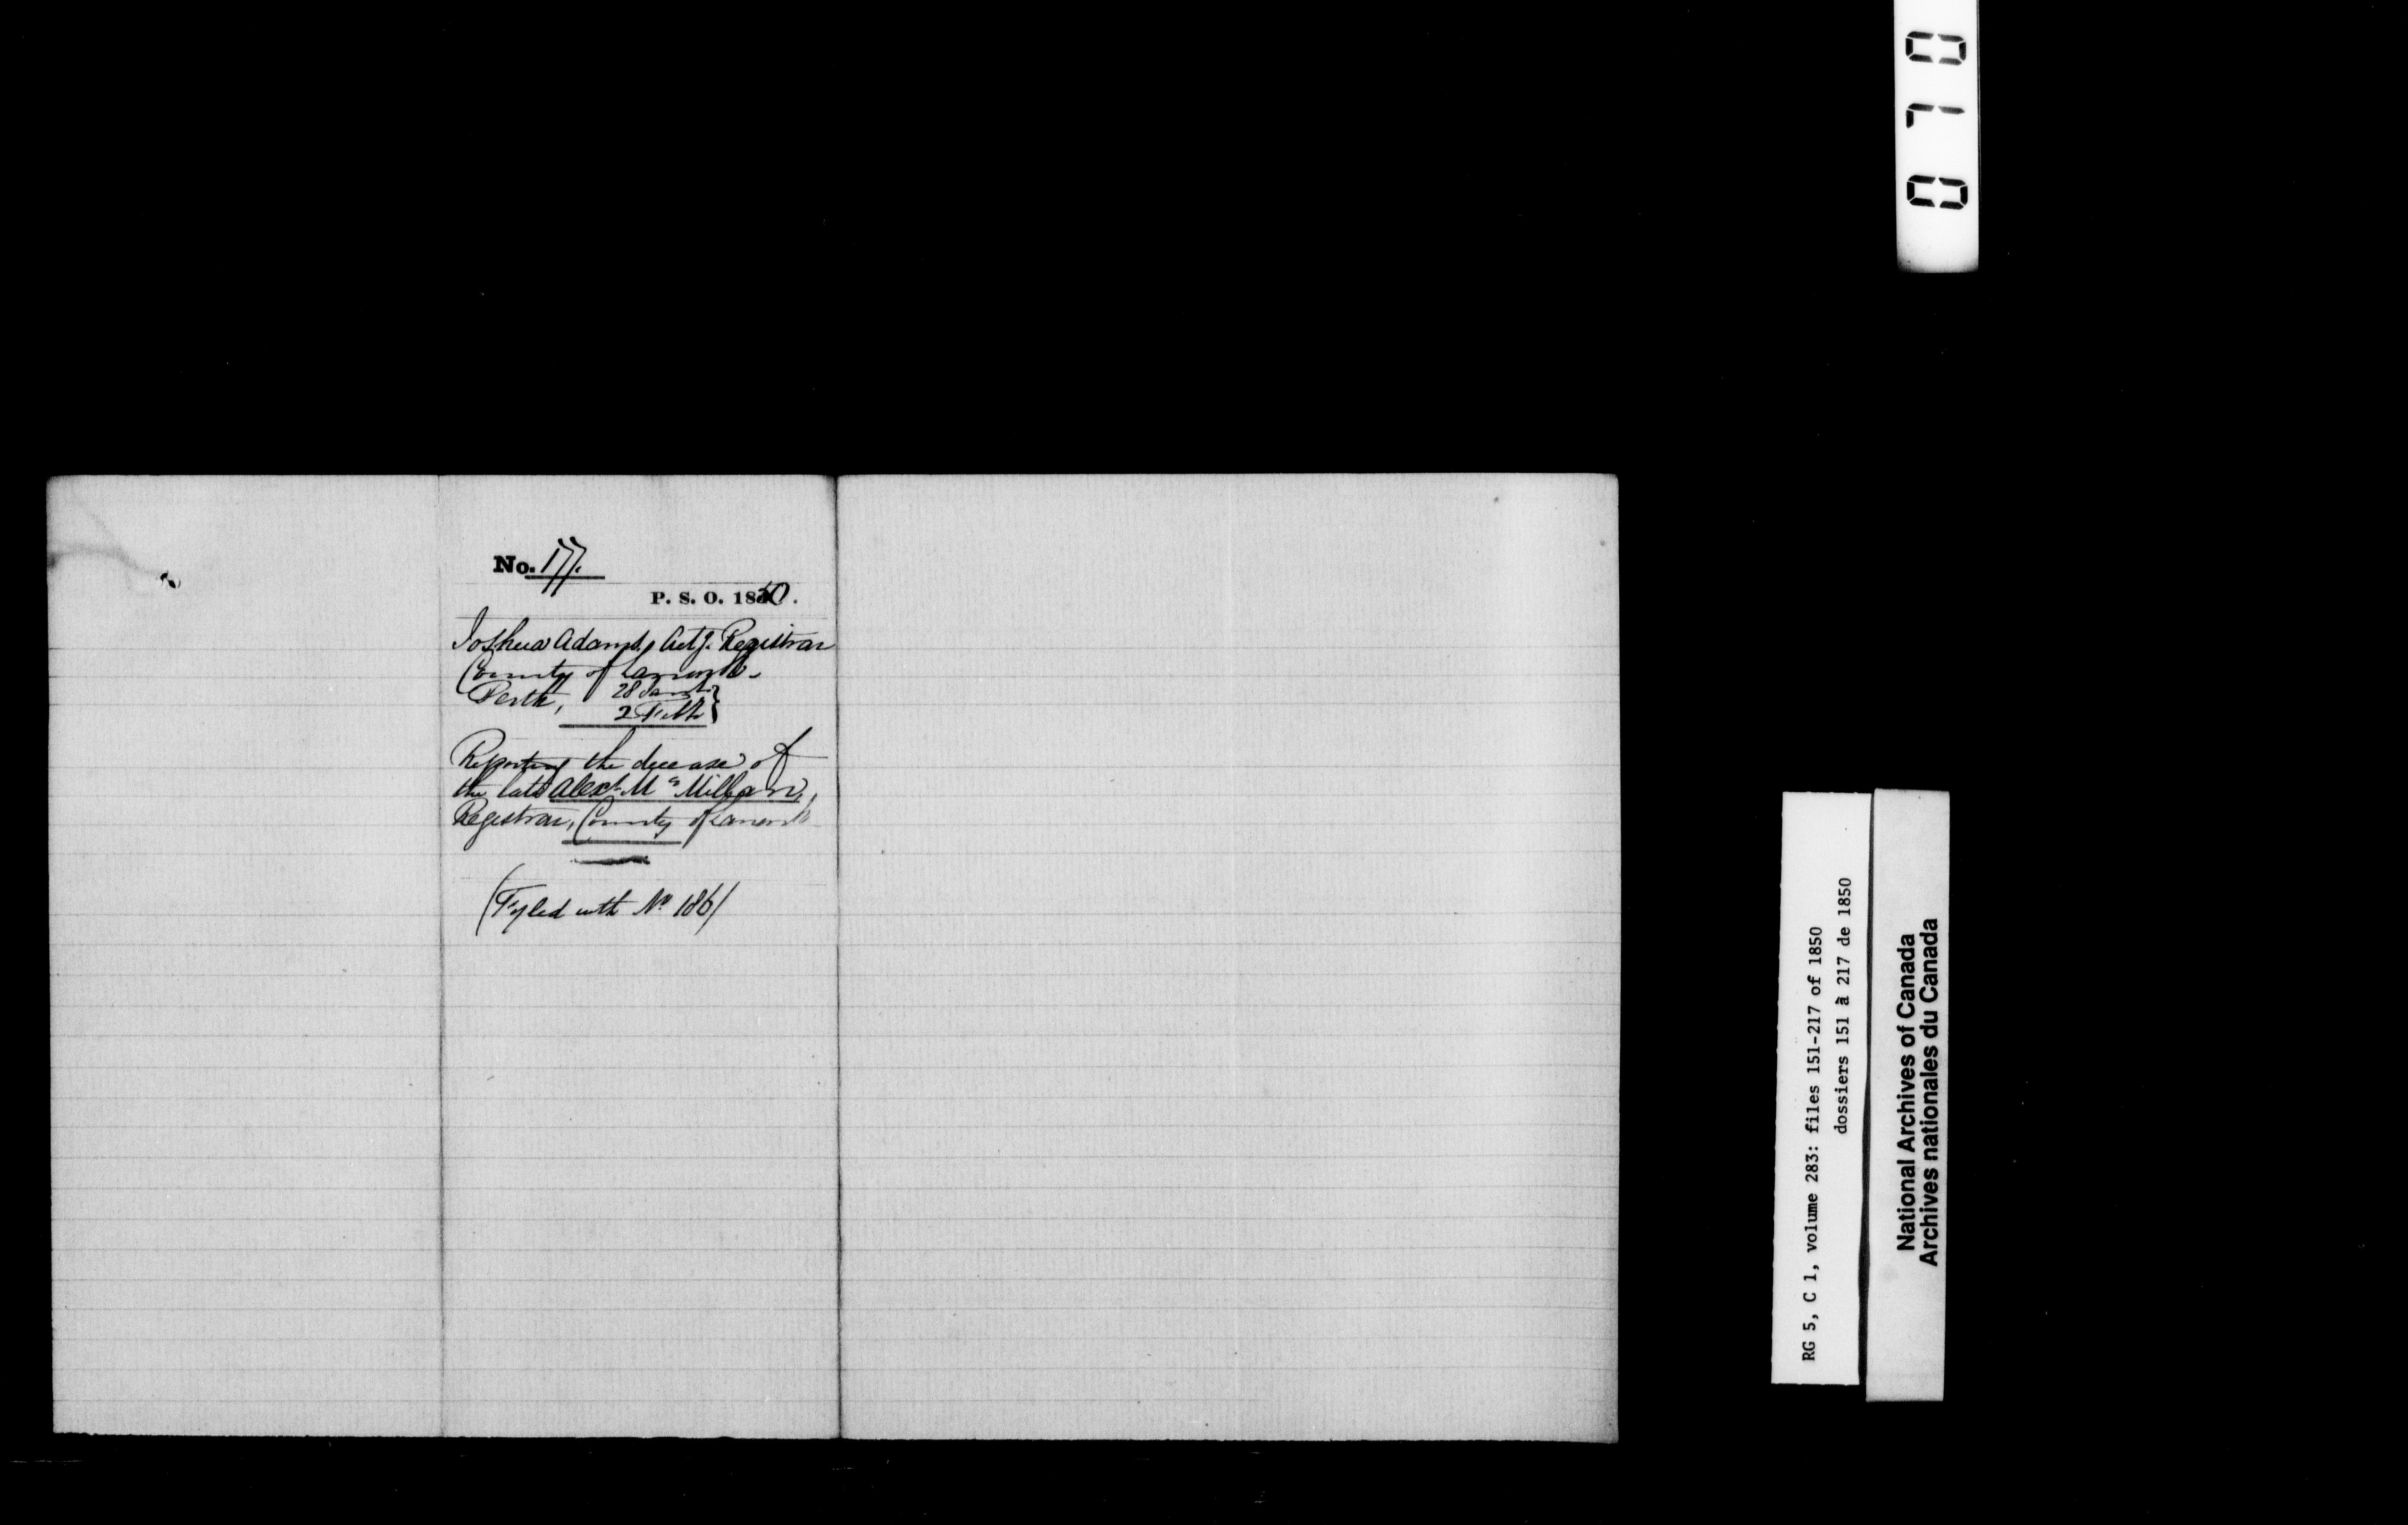 No. 177.
P. S. O. 1850.
Joshua Adams, Actg. Registrar
County of Lanark.
Perth, 28 Jany.
2 Feb.
Reporting the decease of
the late Alexr. McMillan,
Registrar, County of Lanark
(Fyled with No 186)
0710
RG 5, C 1, volume 283: files 151-217 of 1850
dossiers 151 à 217 de 1850
National Archives of Canada
Archives nationales du Canada